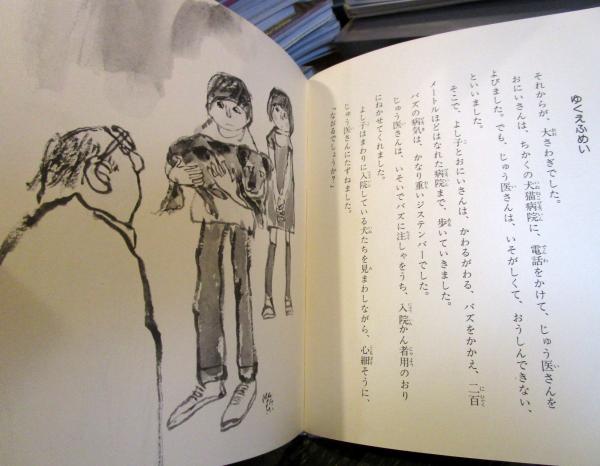 ゆくえふめい
それからが、大さわぎでした。
おにいさんは、ちかくの犬猫病院に、電話をかけて、じゅう医さんを
よびました。でも、じゅう医さんは、いそがしくて、おうしんできない、
といいました。
そこで、よし子とおにいさんは、かわるがわる、バズをかかえ、二百
メートルほどはなれた病院まで、歩いていきました。
バズの病気は、かなり重いジステンパーでした。
じゅう医さんは、いそいでバズに注しゃをうち、入院かん者用のおり
にねかせてくれました。
よし子はまわりに入院している犬たちを見まわしながら、心細そうに、
じゅう医さんにたずねました。
「なおるでしょうか?」